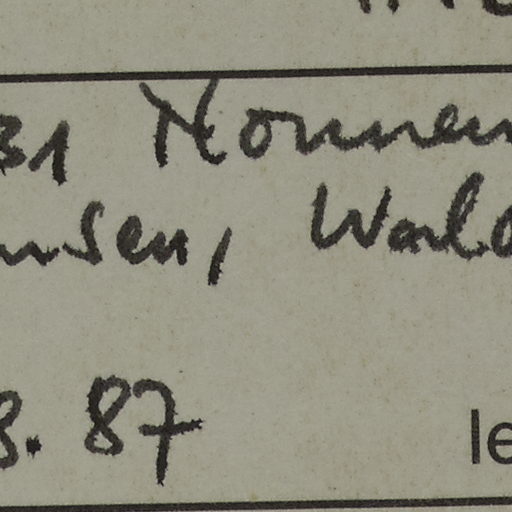 31 Nonnen
nsen, Wald
8. 87
le